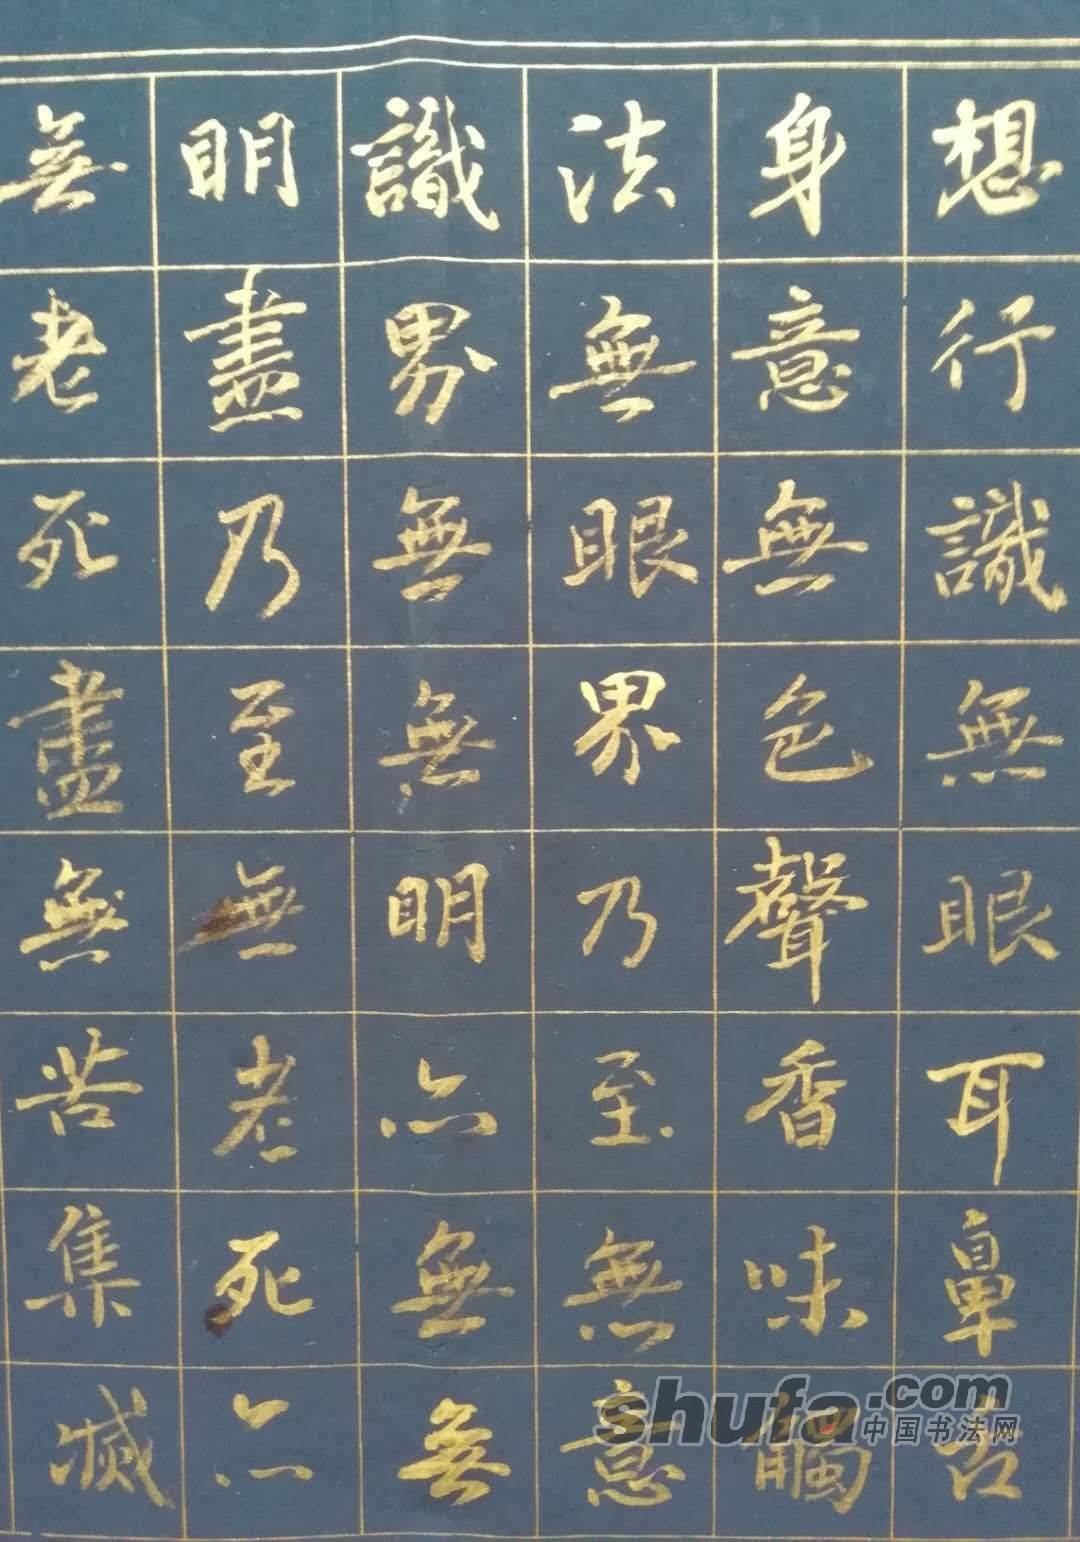 想行識無眼耳鼻舌
身意無色聲香味觸
法無眼界乃至無意
識界無無明亦無無
明盡乃至無老死亦
無老死盡無苦集滅
shufa.com
中国书法网